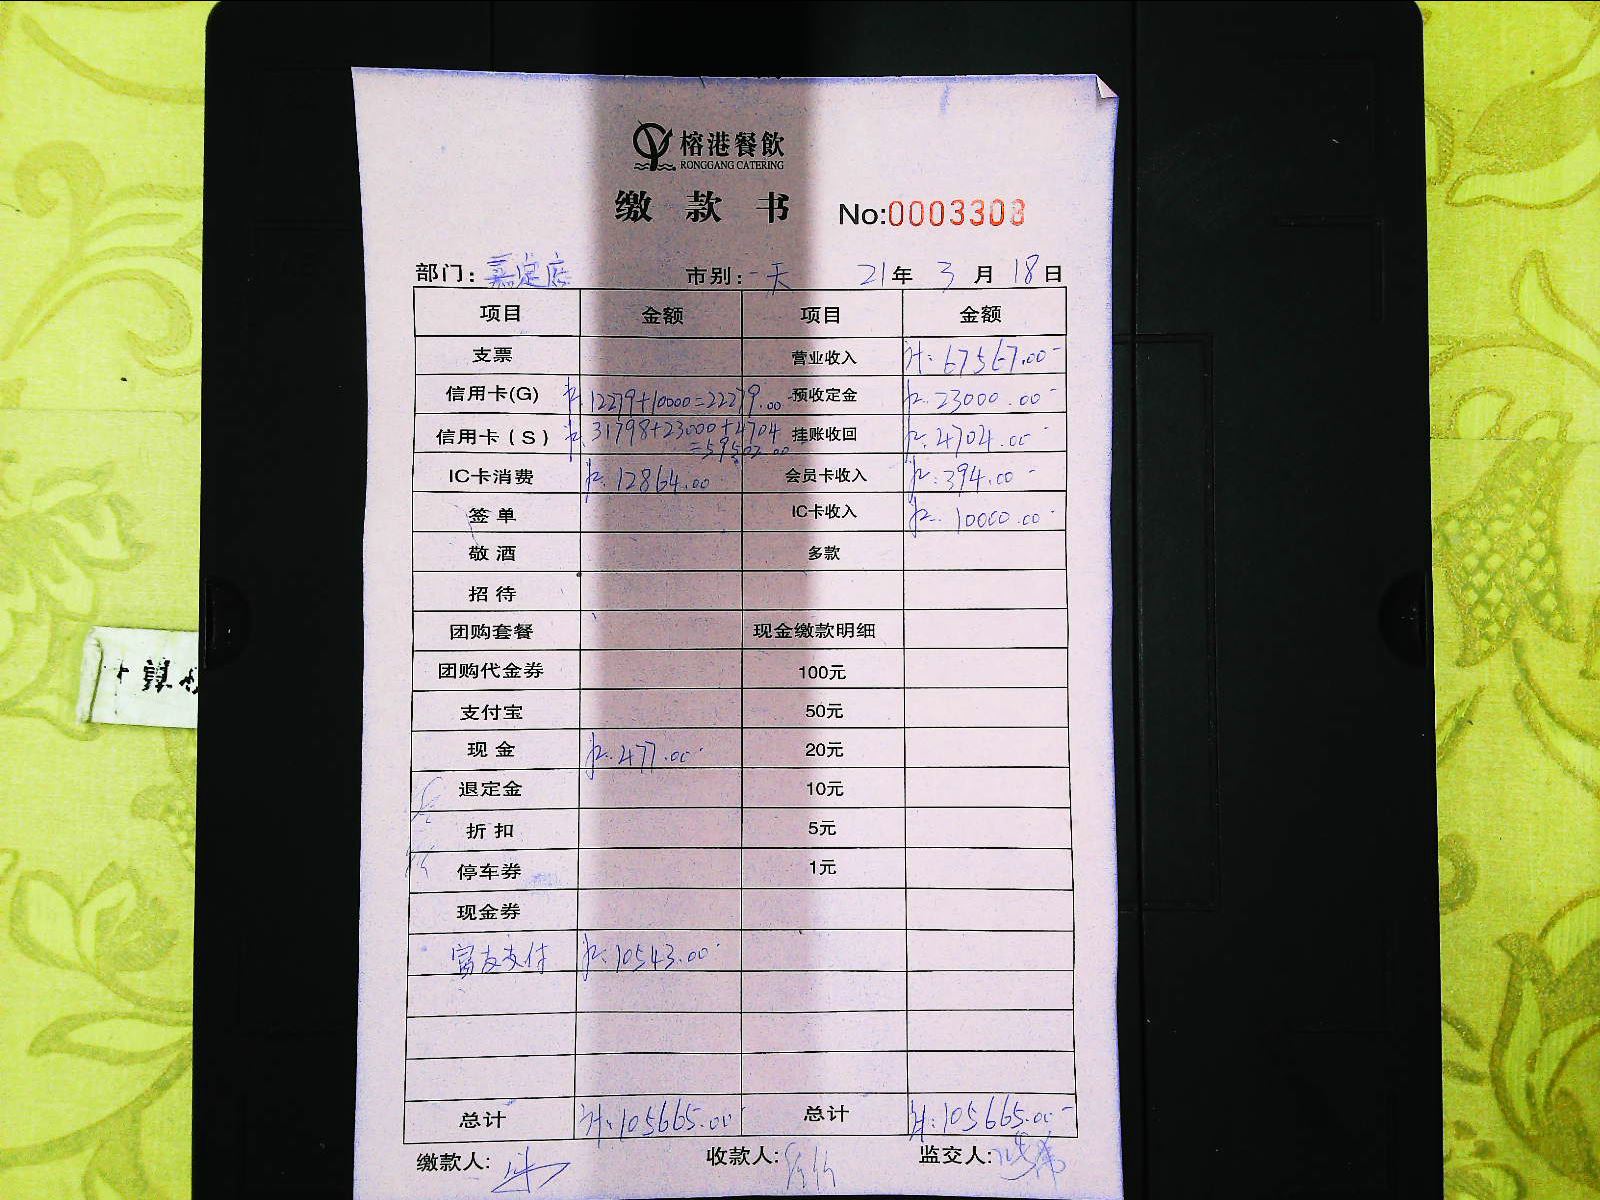 榕港餐飲
RONGGANG CATERING
缴款书 No:0003308
部门:嘉定店 市别:一天 21年3月18日
项目 金额 项目 金额
支票 营业收入 67567.00
信用卡(G) 12279+10000=22279.00 预收定金 23000.00
信用卡(S) 31798+23000+4704 挂账收回 4704.00
=59502.00
IC卡消费 12864.00 会员卡收入 394.00
签单 IC卡收入 10000.00
敬酒 多款
招待
团购套餐 现金缴款明细
团购代金券 100元
支付宝 50元
现金 477.00 20元
退定金 10元
折扣 5元
停车券 1元
现金券
富友支付 10543.00
总计 105665.00 总计 105665.00
缴款人: 收款人: 监交人: